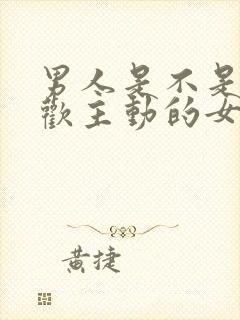 男人是不是
歡主動的女
黃捷